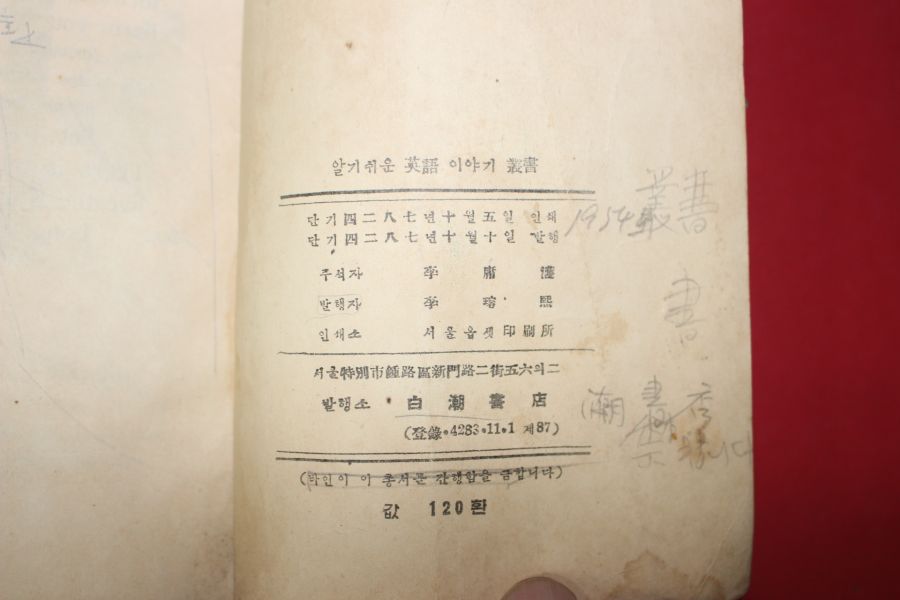 알기쉬운 英語 이야기 叢書
단기四二八七년十월五일 인쇄
단기四二八七년十월十일 발행
주석자 李庸
발행자 李 熙
인쇄소 서울옵셋印刷所
서울特別市鍾路區新門路二街五六의二
발행소 白潮書店
(登錄•4283•11•1 제87)
(타인이 이 총서를 간행함을 금합니다)
값 120환
1954 叢書
書
潮 書